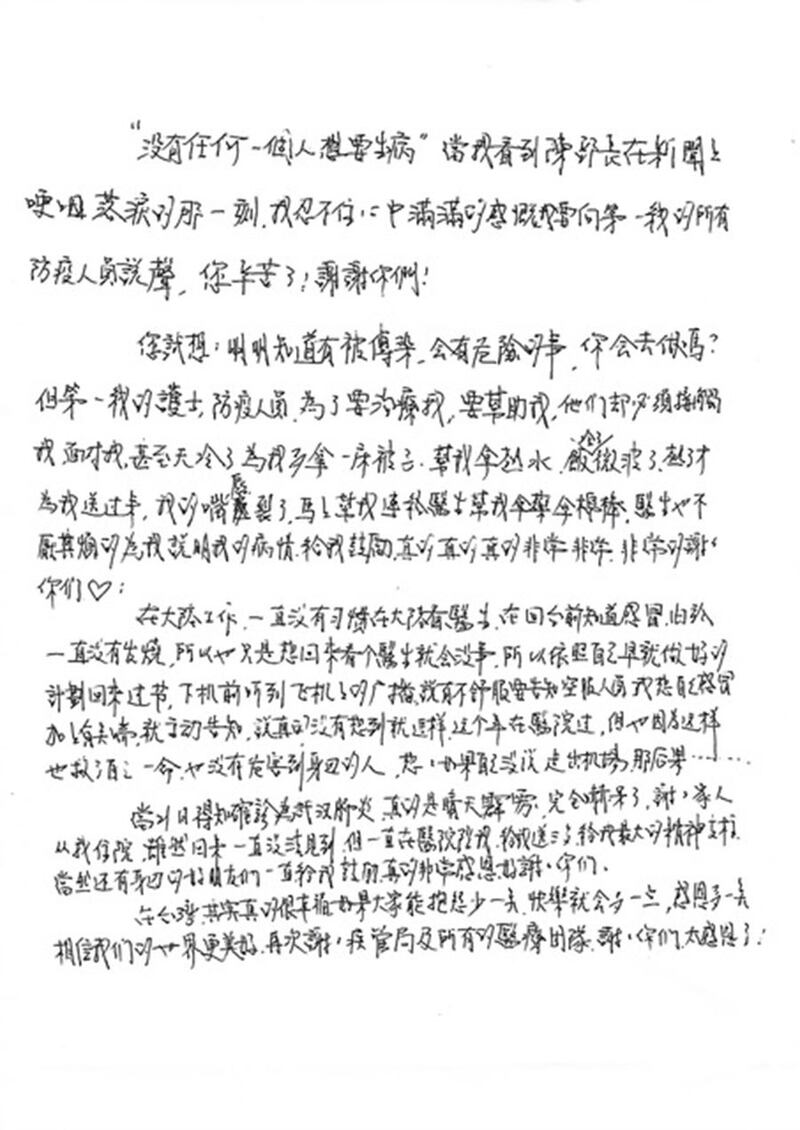 “没有任何一個人想要生病”當我看到陳部長在新聞上
哽咽落淚的那一刻,我忍不住心中滿滿的感慨我要向第一线的所有
防疫人員說聲,你辛苦了!謝謝你們!
您試想:明明知道有被傳染,会有危险的事,你会去做嗎?
但第一线的護士,防疫人員,為了要治療我,要幫助我,他们却必須接觸
我,面对我,甚至天冷了為我多拿一床被子.幫我拿热水,飯冷了微波了,热了才
為我送过来,我的嘴唇裂了,馬上幫我連絡醫生幫我拿藥拿棉棒,醫生也不
厭其煩的為我說明我的病情.給我鼓励,真的真的真的非常非常.非常的謝谢
你们♡:
在大陸工作,一直没有习慣在大陸看醫生,在回台前知道感冒,由於
一直没有发燒,所以也只是想回來看个醫生就会没事,所以依照自己早就做好的
計劃回来过节,下机前听到飞机上的广播,說有不舒服要告知空服人員,我想自己感冒
加上有点嗽,就主动告知,說真的没有想到就这样,这个年在醫院过,但也因為这样
也救了自己一命,也没有危害到身边的人,想想如果自己没說,走出机場,那后果⋯⋯⋯
當21日得知確診為武汉肺炎,真的是晴天霹靂,完全精呆了,謝谢家人
从我住院,雖然回来一直没法見到,但一直在醫院陪我,給我送三餐,給我最大的精神支柱,
當然还有身边的好朋友们一直給我鼓励,真的非常感恩.好謝谢你们.
在台灣,其实真的很幸福.如果大家能抱怨少一点,快樂就会多一点,感恩多一点
相信我们的世界更美好.再次謝谢疾管局及所有的醫療团隊,謝谢你们,太感恩了!